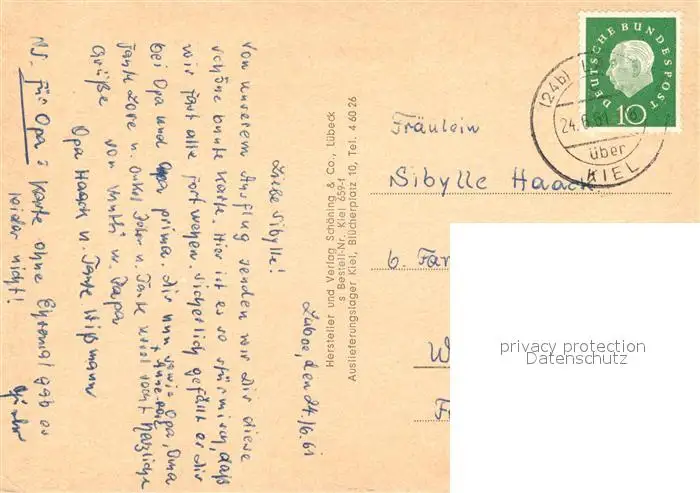 Laboe, den 24./6.61
Liebe Sibylle!
Von unserem Ausflug senden wir Dir diese
schöne bunte Karte. Hier ist es so stürmisch, daß
wir fast alle fortwehen. Sicherlich gefällt es dir
bei Opa und Oma prima. Dir nun sowie Opa, Oma
Tante Lore u. Onkel u. Tante recht herzliche
Grüße von Mutti u. Papa
Opa Haack u. Tante Wißmann
NS. Für Opa: Karte ohne Ehrenmal gab es
leider nicht!
Hersteller und Verlag Schöning & Co., Lübeck
s Bestell-Nr. Kiel 659-f
Auslieferungslager Kiel, Blücherplatz 10, Tel. 4 60 26
DEUTSCHE BUNDESPOST
10
(24b)
24.6.61
über
KIEL
Fräulein
Sibylle Haack
b. Fa
W
privacy protection
Datenschutz